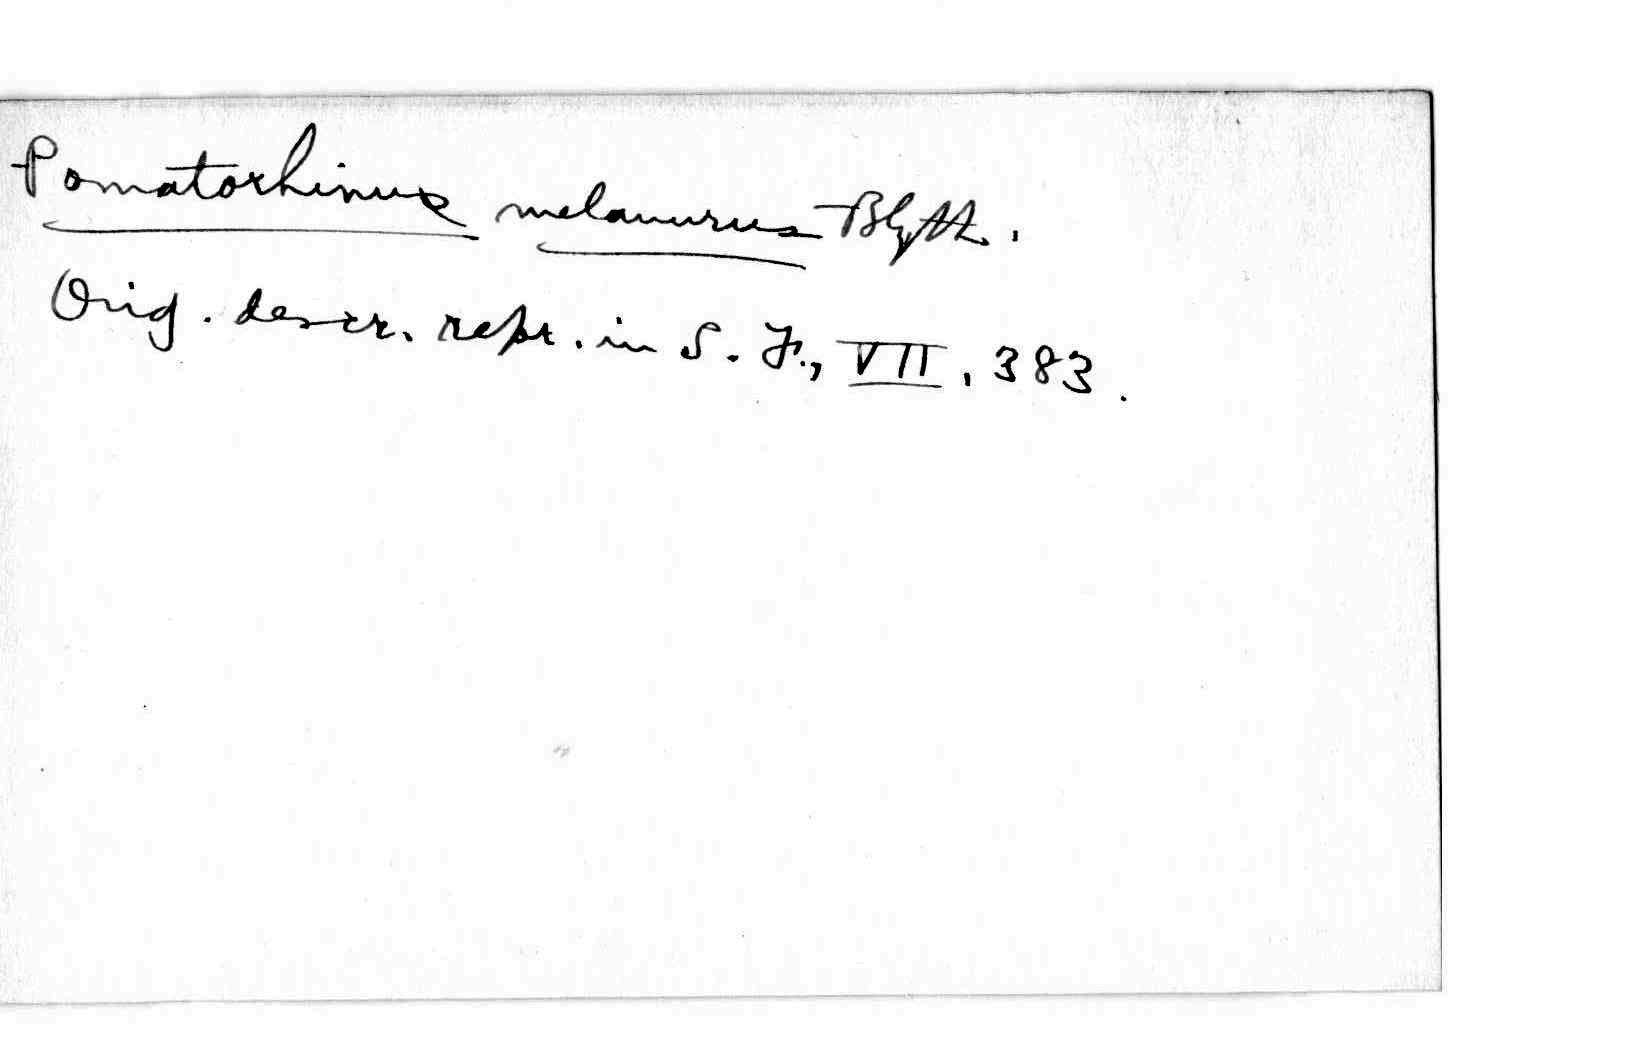 Pomatorhinus melanurus Blyth.
Orig. descr. repr. in S. F., VII, 383.